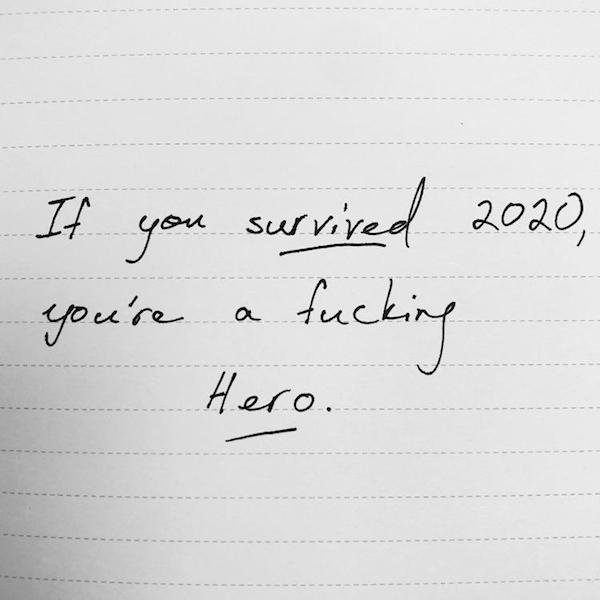 If you survived 2020,
you're a fucking
Hero.